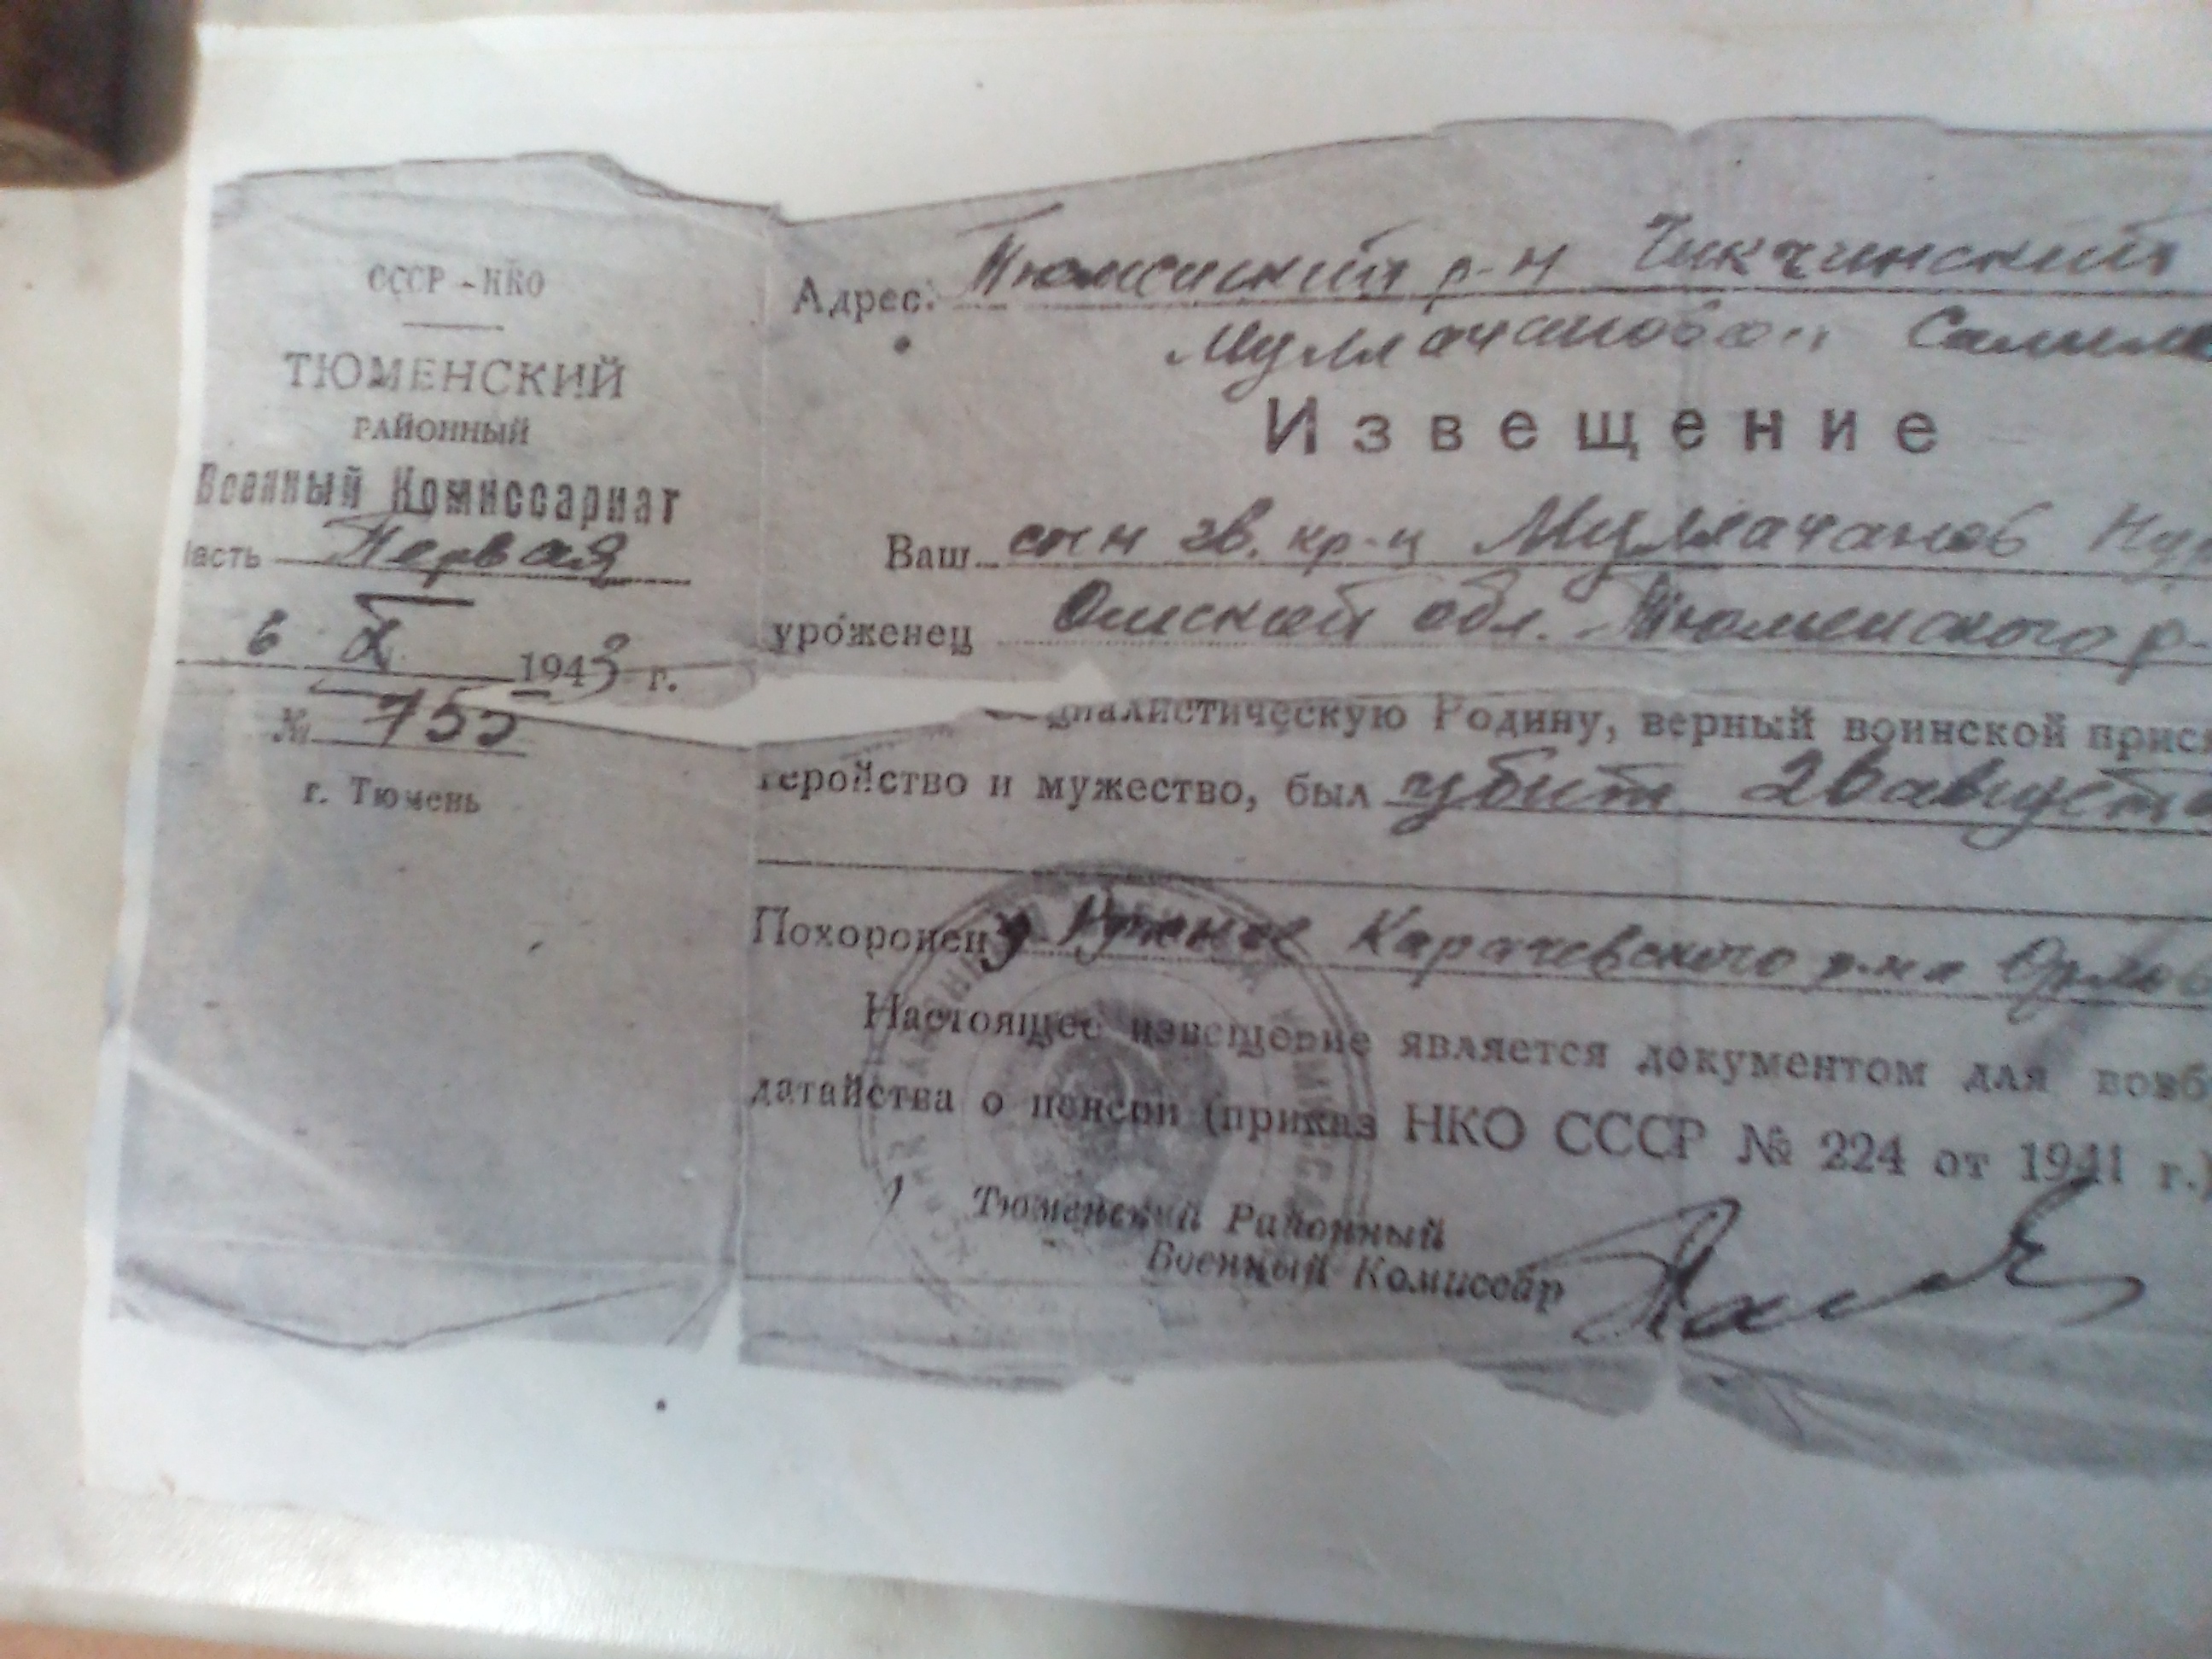 СССР - НКО
ТЮМЕНСКИЙ
РАЙОННЫЙ
Военный Комиссариат
часть Первая
6 X 1943 г.
№ 755
г. Тюмень
Адрес: Тюменский р-н Чикчинский
Муллачановой
Извещение
Ваш сын гв. кр-ц Муллачанов
уроженец Омской обл. Тюменского р-
циалистическую Родину, верный воинской прися
геройство и мужество, был убит 26 августа
Похоронен у Карачевского р-на Орлов
Настоящее извещение является документом для возб
датайства о пенсии (приказ НКО СССР № 224 от 1941 г.)
Тюменский Районный
Военный Комиссар